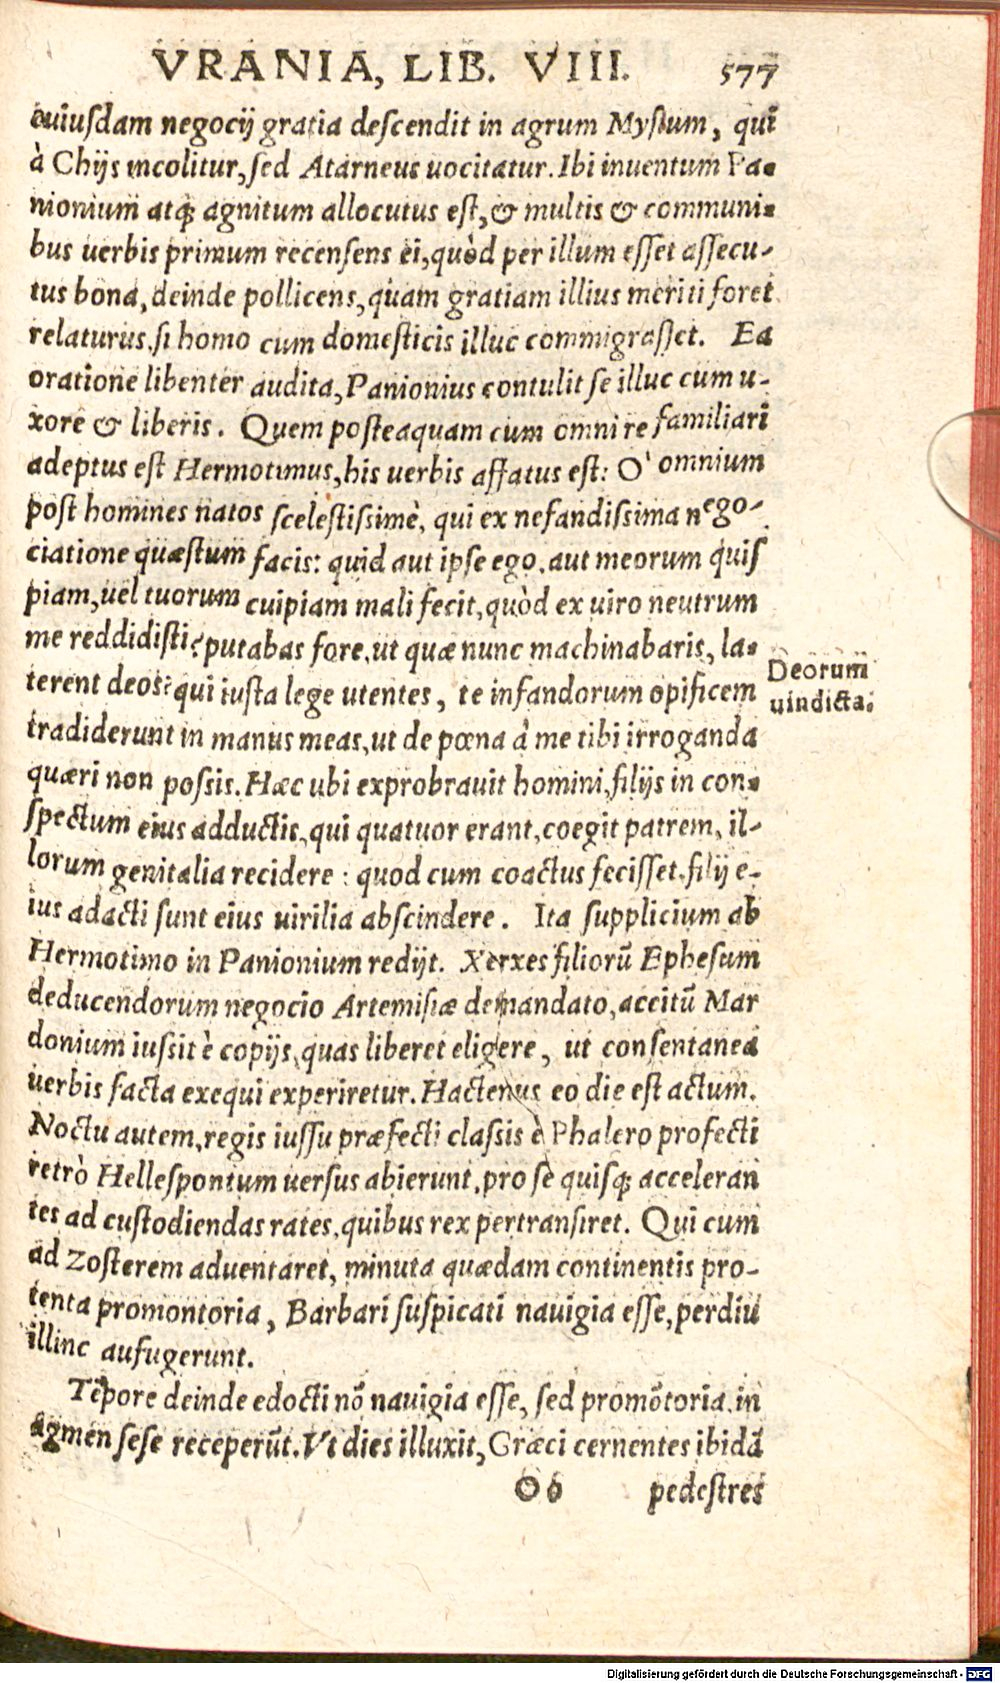 VRANIA, LIB. VIII. 577
cuiusdam negocij gratia descendit in agrum Mysium, qui
à Chijs incolitur, sed Atarneus uocitatur. Ibi inuentum Pa-
nionium atq; agnitum allocutus est, & multis & communi-
bus uerbis primum recensens ei, quòd per illum esset assecu-
tus bona, deinde pollicens, quam gratiam illius meriti foret
relaturus, si homo cum domesticis illuc commigrasset. Ea
oratione libenter audita, Panionius contulit se illuc cum u-
xore & liberis. Quem posteaquam cum omni re familiari
adeptus est Hermotimus, his uerbis affatus est: O' omnium
post homines natos scelestissimè, qui ex nefandissima nego-
ciatione quæstum facis: quid aut ipse ego, aut meorum quis
piam, uel tuorum cuipiam mali fecit, quòd ex uiro neutrum
me reddidisti? putabas fore, ut quæ nunc machinabaris, la-
terent deos? qui iusta lege utentes, te infandorum opificem
Deorum
uindicta.
tradiderunt in manus meas, ut de pœna à me tibi irroganda
quæri non possis. Hæc ubi exprobrauit homini, filijs in con-
spectum eius adductis, qui quatuor erant, coegit patrem, il-
lorum genitalia recidere : quod cum coactus fecisset, filij e-
ius adacti sunt eius uirilia abscindere. Ita supplicium ab
Hermotimo in Panionium redijt. Xerxes filiorũ Ephesum
deducendorum negocio Artemisiæ demandato, accitũ Mar
donium iussit è copijs, quas liberet eligere, ut consentanea
uerbis facta exequi experiretur. Hactenus eo die est actum.
Noctu autem, regis iussu præfecti classis è Phalero profecti
retrò Hellespontum uersus abierunt, pro se quisq; acceleran
tes ad custodiendas rates, quibus rex pertransiret. Qui cum
ad Zosterem aduentaret, minuta quædam continentis pro-
tenta promontoria, Barbari suspicati nauigia esse, perdiu
illinc aufugerunt.
Tẽpore deinde edocti nõ nauigia esse, sed promõtoria, in
agmen sese receperũt. Vt dies illuxit, Græci cernentes ibidẽ
Oo pedestres
Digitalisierung gefördert durch die Deutsche Forschungsgemeinschaft - DFG